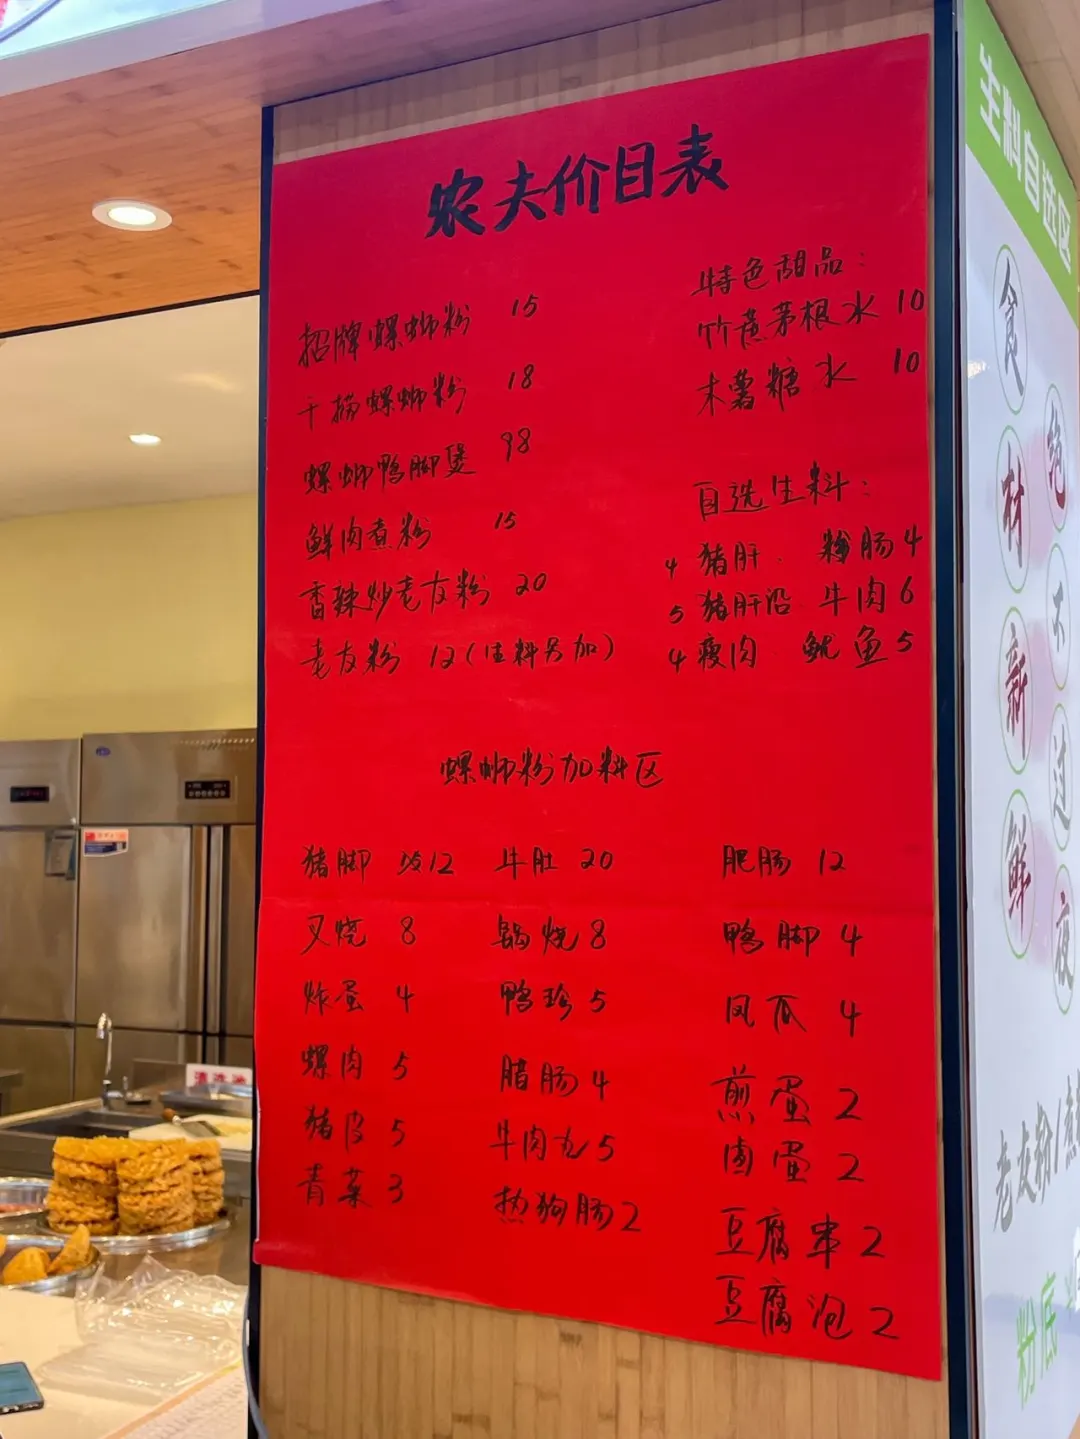 农夫价目表
招牌螺蛳粉 15
干捞螺蛳粉 18
螺蛳鸭脚煲 98
鲜肉煮粉 15
香辣炒老友粉 20
老友粉 12(生料另加)
特色甜品:
竹蔗茅根水 10
木薯糖水 10
自选生料:
4 猪肝. 粉肠 4
5 猪肝沿. 牛肉 6
4 瘦肉 鱿鱼 5
螺蛳粉加料区
猪脚 12 牛肚 20 肥肠 12
叉烧 8 锅烧 8 鸭脚 4
炸蛋 4 鸭珍 5 凤爪 4
螺肉 5 腊肠 4 煎蛋 2
猪皮 5 牛肉丸 5 卤蛋 2
青菜 3 热狗肠 2 豆腐串 2
豆腐泡 2
生料自选区
食材新鲜
绝不过夜
老友粉/煮
粉底